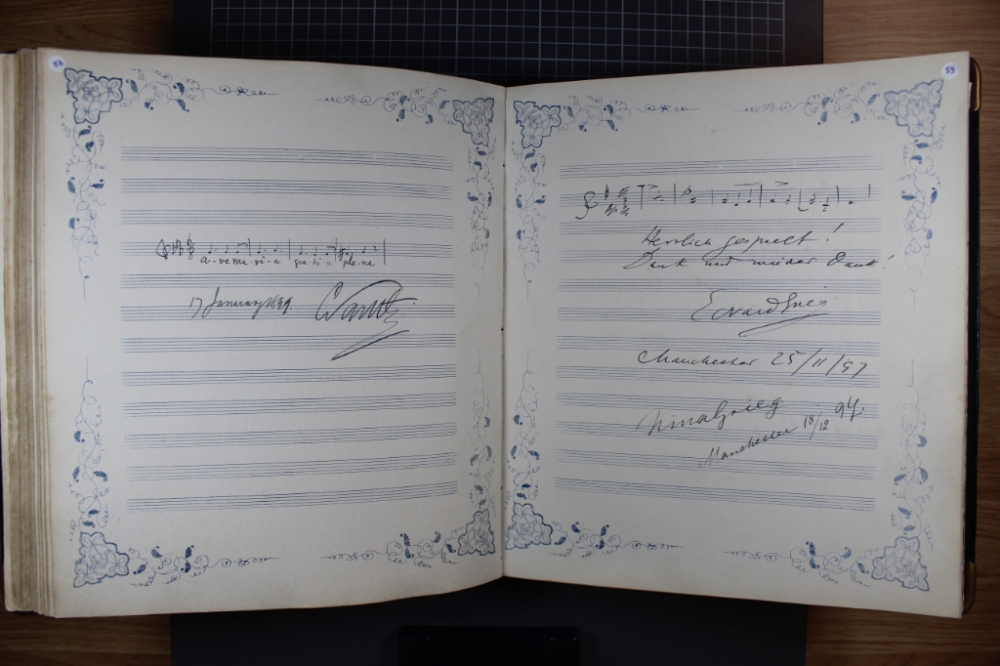 58
A - ve ma - ri - a gra - ti - a ple - na
17 January 1899
59
Herrlich gespielt!
Dank und wieder Dank!
Edvard Grieg
Manchester 25/11/97
Nina Grieg
Manchester 18/12 97.